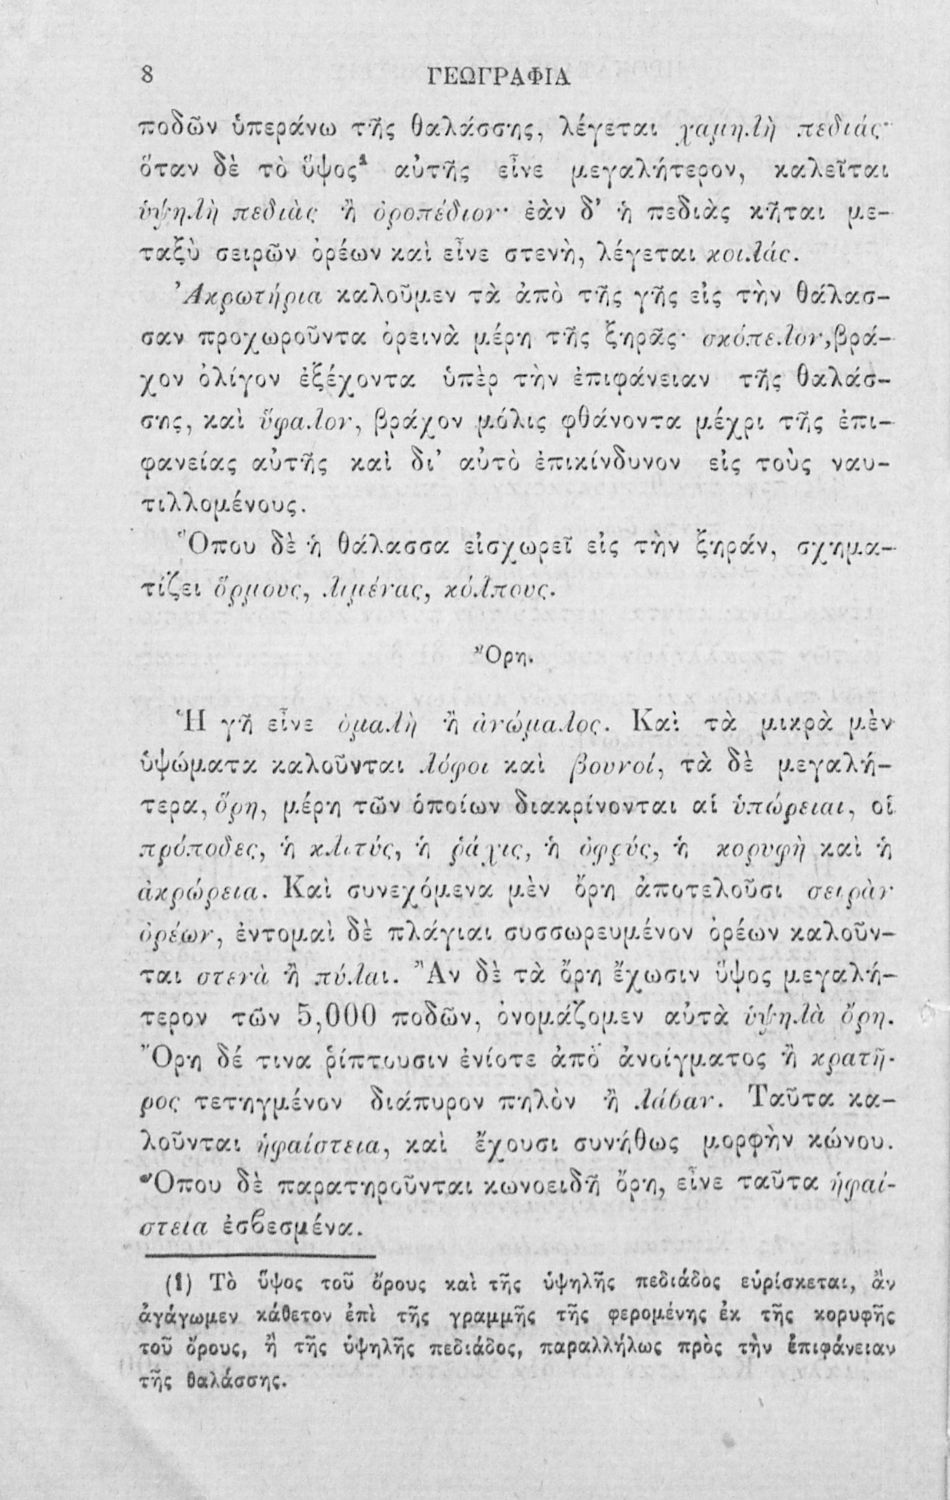 8 ΓΕΩΓΡΑΦΙΑ
ποδῶν ὑπεράνω τῆς θαλάσσης, λέγεται χαμηλὴ πεδιάς·
ὅταν δὲ τὸ ὕψος¹ αὐτῆς εἶνε μεγαλήτερον, καλεῖται
ὑψηλὴ πεδιὰς ἢ ὀροπέδιον· ἐὰν δ’ ἡ πεδιὰς κῆται με-
ταξὺ σειρῶν ὀρέων καὶ εἶνε στενὴ, λέγεται κοιλάς.
Ἀκρωτήρια καλοῦμεν τὰ ἀπὸ τῆς γῆς εἰς τὴν θάλασ-
σαν προχωροῦντα ὀρεινὰ μέρη τῆς ξηρᾶς· σκόπελον, βρά-
χον ὀλίγον ἐξέχοντα ὑπὲρ τὴν ἐπιφάνειαν τῆς θαλάσ-
σης, καὶ ὕφαλον, βράχον μόλις φθάνοντα μέχρι τῆς ἐπι-
φανείας αὐτῆς καὶ δι’ αὐτὸ ἐπικίνδυνον εἰς τοὺς ναυ-
τιλλομένους.
Ὅπου δὲ ἡ θάλασσα εἰσχωρεῖ εἰς τὴν ξηράν, σχημα-
τίζει ὅρμους, λιμένας, κόλπους.
Ὄρη.
Ἡ γῆ εἶνε ὁμαλὴ ἢ ἀνώμαλος. Καὶ τὰ μικρὰ μὲν
ὑψώματα καλοῦνται λόφοι καὶ βουνοί, τὰ δὲ μεγαλή-
τερα, ὄρη, μέρη τῶν ὁποίων διακρίνονται αἱ ὑπώρειαι, οἱ
πρόποδες, ἡ κλιτύς, ἡ ῥάχις, ἡ ὀφρύς, ἡ κορυφὴ καὶ ἡ
ἀκρώρεια. Καὶ συνεχόμενα μὲν ὄρη ἀποτελοῦσι σειρὰν
ὀρέων, ἐντομαὶ δὲ πλάγιαι συσσωρευμένον ὀρέων καλοῦν-
ται στενὰ ἢ πύλαι. Ἂν δὲ τὰ ὄρη ἔχωσιν ὕψος μεγαλή-
τερον τῶν 5,000 ποδῶν, ὀνομάζομεν αὐτὰ ὑψηλὰ ὄρη.
Ὄρη δέ τινα ῥίπτουσιν ἐνίοτε ἀπὸ ἀνοίγματος ἢ κρατῆ-
ρος τετηγμένον διάπυρον πηλὸν ἢ λάβαν. Ταῦτα κα-
λοῦνται ἡφαίστεια, καὶ ἔχουσι συνήθως μορφὴν κώνου.
Ὅπου δὲ παρατηροῦνται κωνοειδῆ ὄρη, εἶνε ταῦτα ἡφαί-
στεία ἐσβεσμένα.
(1) Τὸ ὕψος τοῦ ὄρους καὶ τῆς ὑψηλῆς πεδιάδος εὑρίσκεται, ἂν
ἀγάγωμεν κάθετον ἐπὶ τῆς γραμμῆς τῆς φερομένης ἐκ τῆς κορυφῆς
τοῦ ὄρους, ἢ τῆς ὑψηλῆς πεδιάδος, παραλλήλως πρὸς τὴν ἐπιφάνειαν
τῆς θαλάσσης.